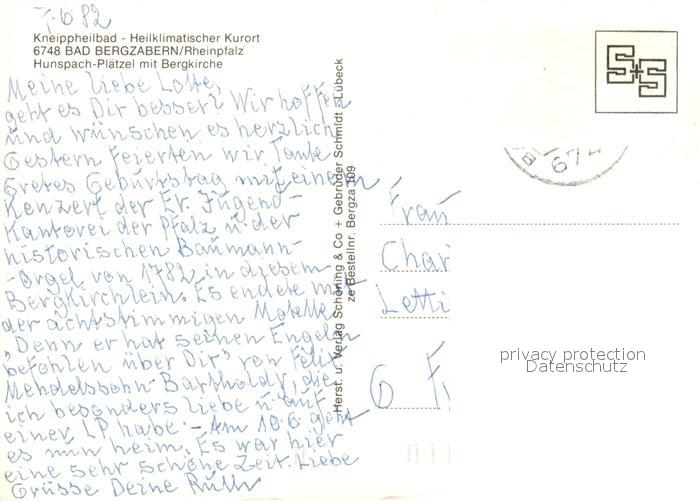 7.6.82
Kneippheilbad - Heilklimatischer Kurort
6748 BAD BERGZABERN/Rheinpfalz
Hunspach-Plätzel mit Bergkirche
Meine liebe Lotte,
geht es Dir besser? Wir hoffen
und wünschen es herzlich
Gestern feierten wir Tante
Gretes Geburtstag mit einem
Konzert der Ev. Jugend-
Kantorei der Pfalz u. der
historischen Baumann-
-Orgel von 1782 in diesem
Bergkirchlein. Es endete mit
der achtstimmigen Motette
"Denn er hat seinen Engeln
befohlen über Dir" von Felix
Mendelssohn-Bartholdy, die
ich besonders liebe u. auf
einer LP habe. - Am 10.6. geht
es nun heim. Es war hier
eine sehr schöne Zeit. Liebe
Grüsse Deine Ruth
Herst. u. Verlag Schöning & Co + Gebrüder Schmidt - Lübeck
ze Bestellnr. Bergza 109
S+S
674
Frau
Char
Letti
6 F
privacy protection
Datenschutz